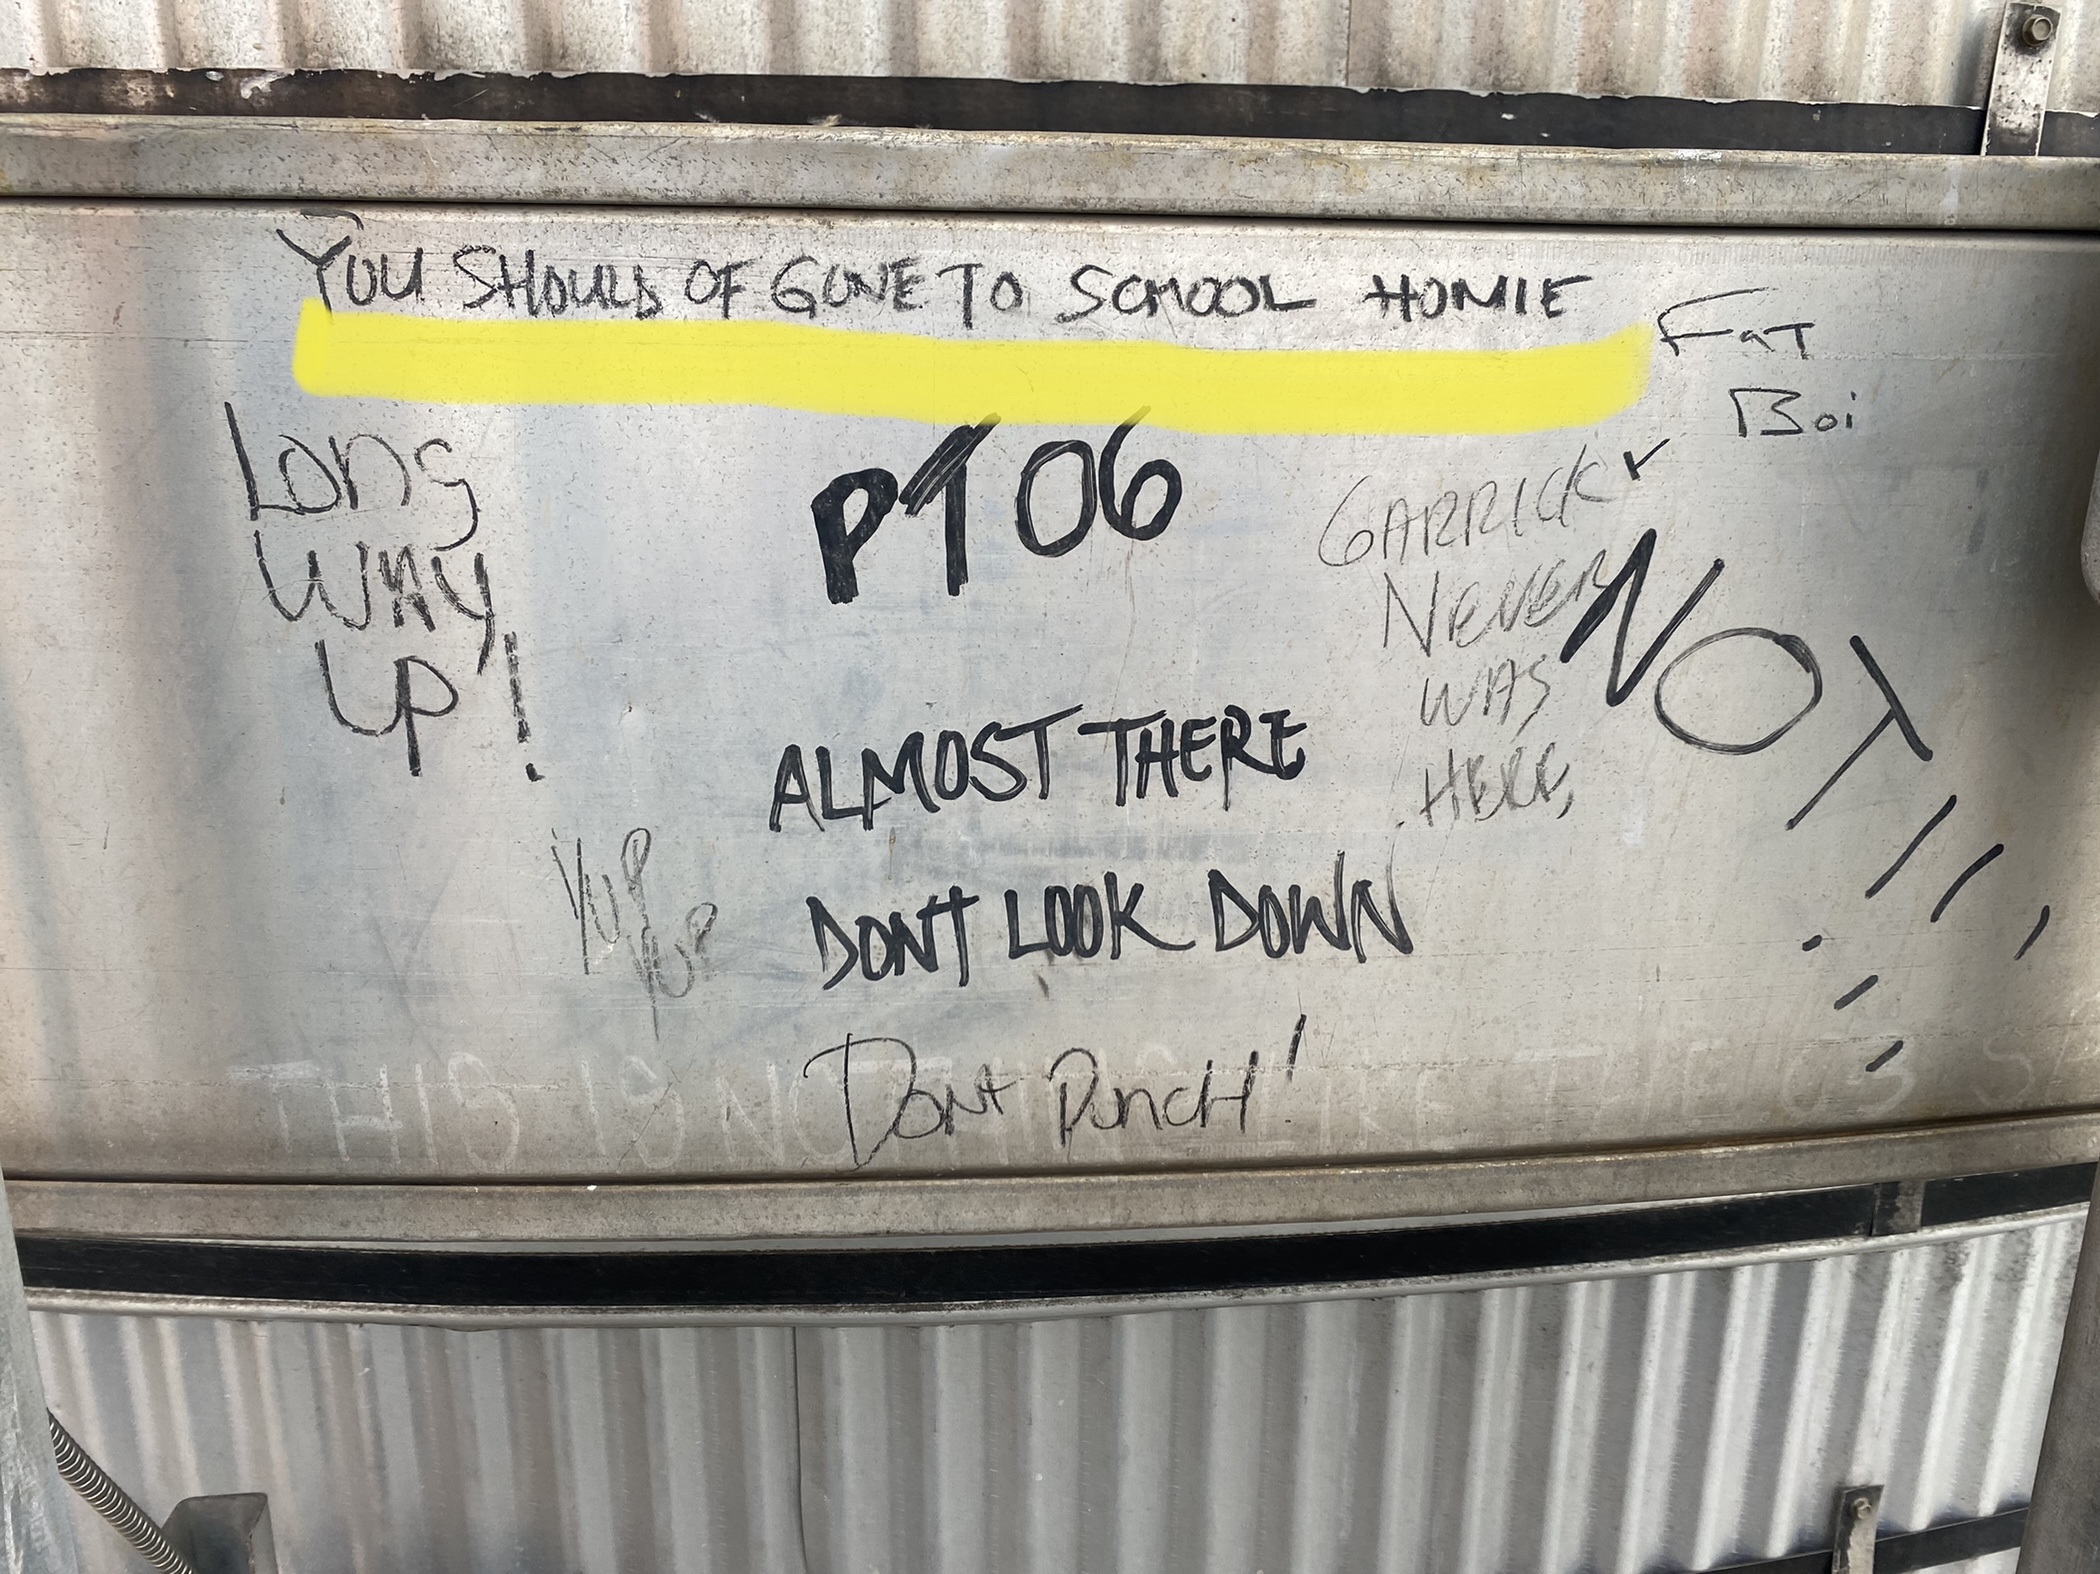 YOU SHOULD OF GONE TO SCHOOL HOMIE
FaT
Boi
Long
WAY
UP!
P106
GARRICK
NEVER
WAS
HERE,
NOT!!!
ALMOST THERE
YUP
YUP
DONT LOOK DOWN
Dont PuncH!
THIS IS NOTHING LIKE THE